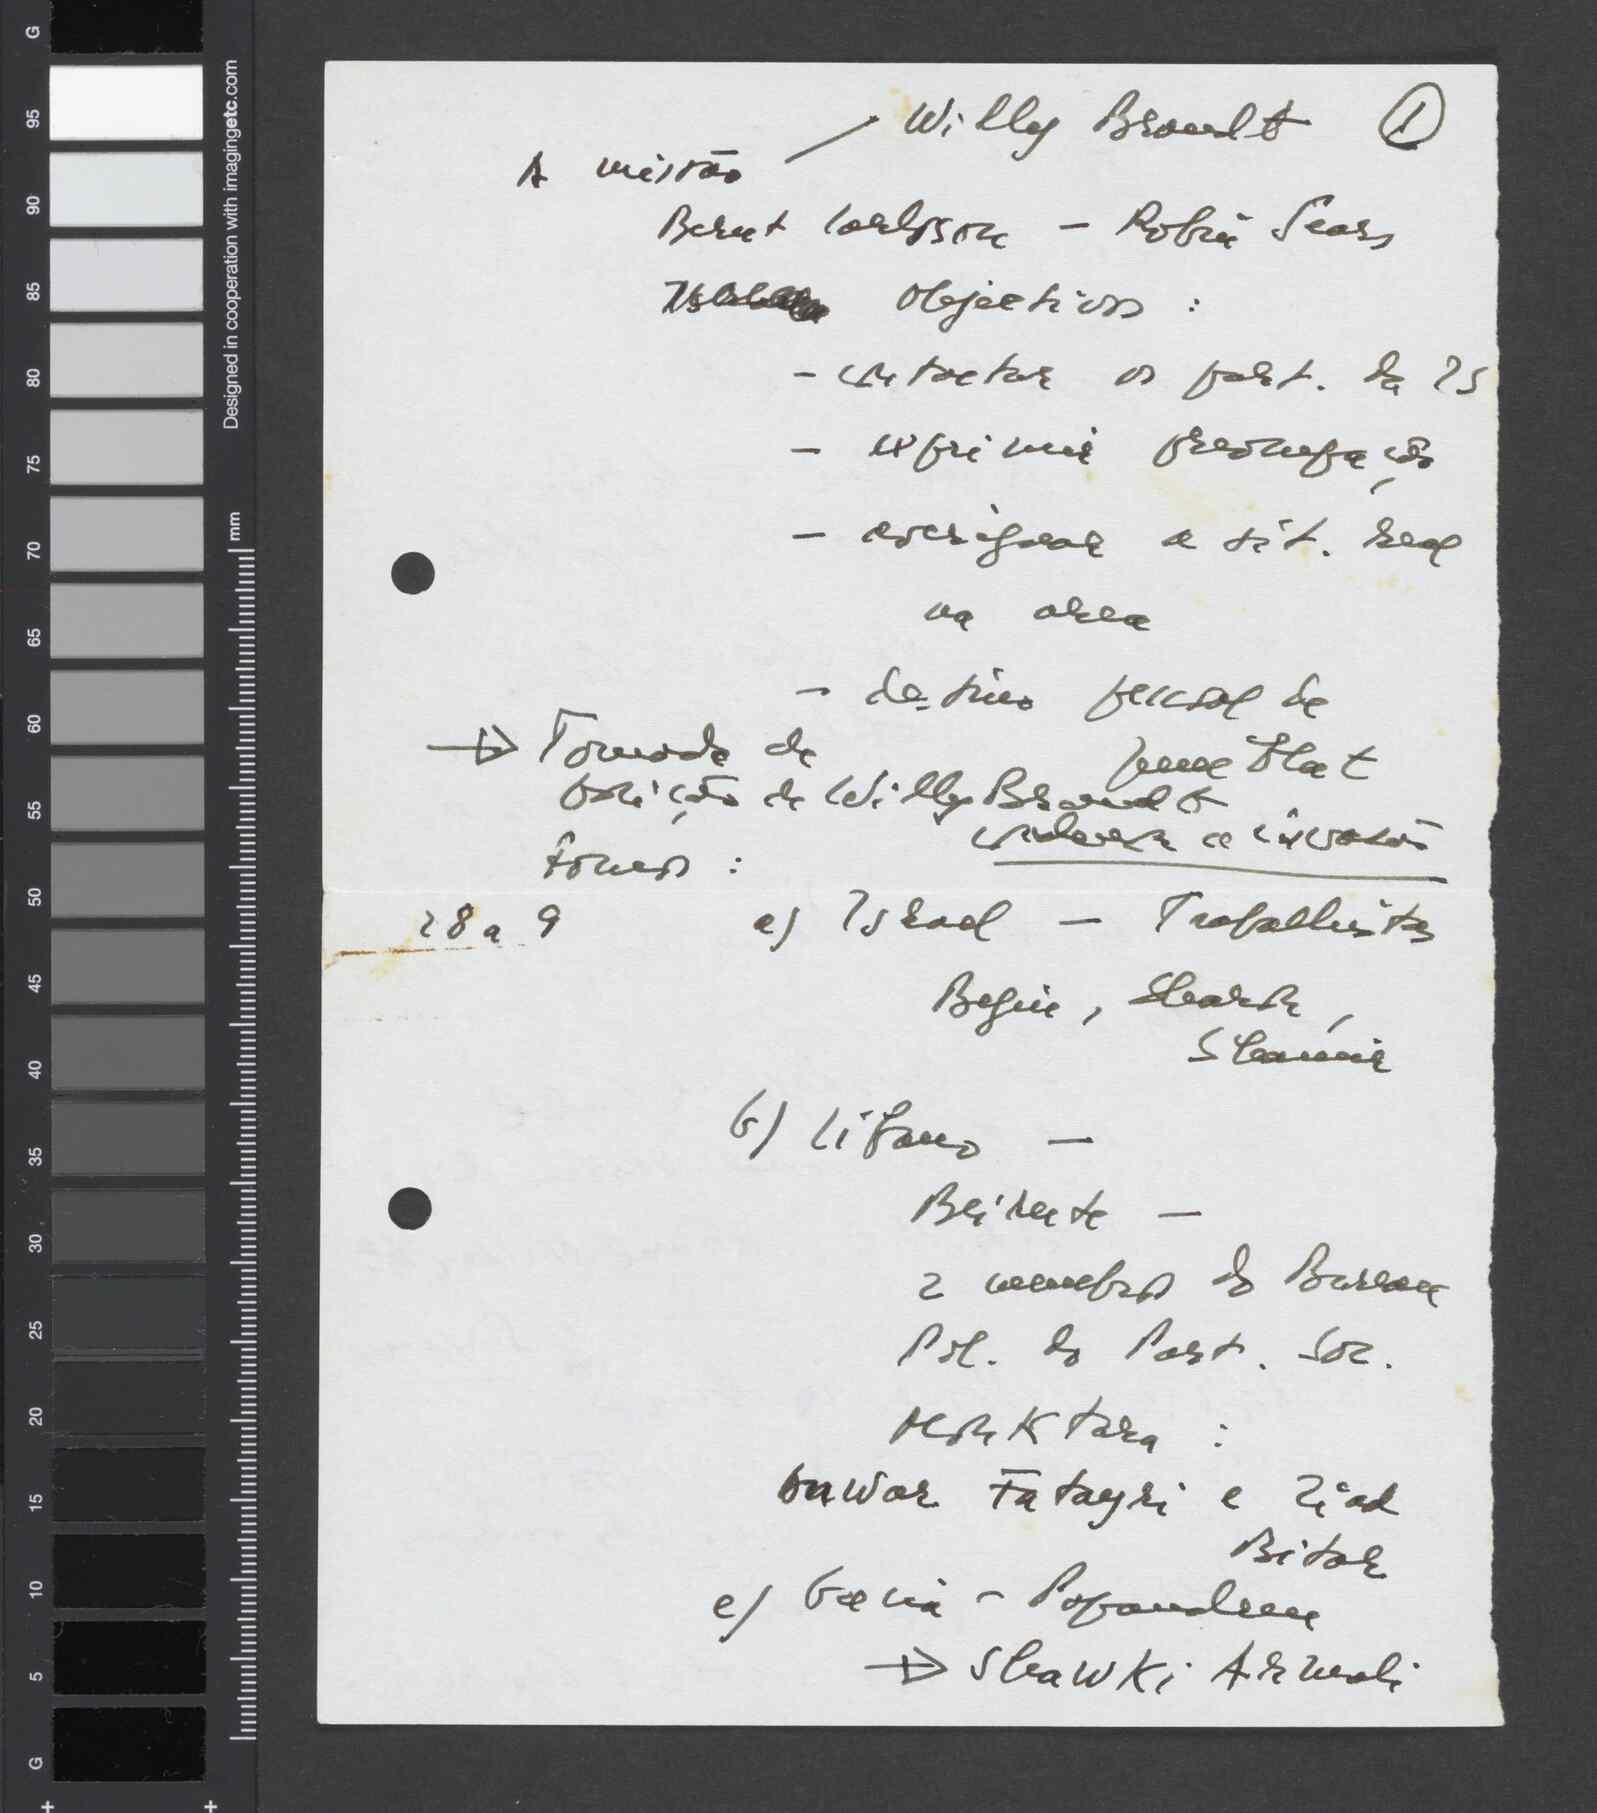 Willy Brandt 1
A missão
Bernt Carlsson – Robin Sears
Objectivos :
– contactar os part. da IS
– exprimir preocupação
– averiguar a sit. real
na area
– destino pessoal de
Jumblat
→ Tomada de
posição de Willy Brandt
condenar a invasão
Fomos :
28 a 9 a) Israel – Trabalhistas
Begin, Sharon,
Shamir
b) Libano –
Beirute –
2 membros do Bureau
Pol. do Part. Soc.
Moktara :
Anwar Fatayri e Ziad
Bitar
c) Grecia – Papandreu
→ Shawki Armali
G 95 90 85 80 75 70 65 60 55 50 45 40 35 30 25 20 15 10 5 G
Designed in cooperation with imagingetc.com
mm